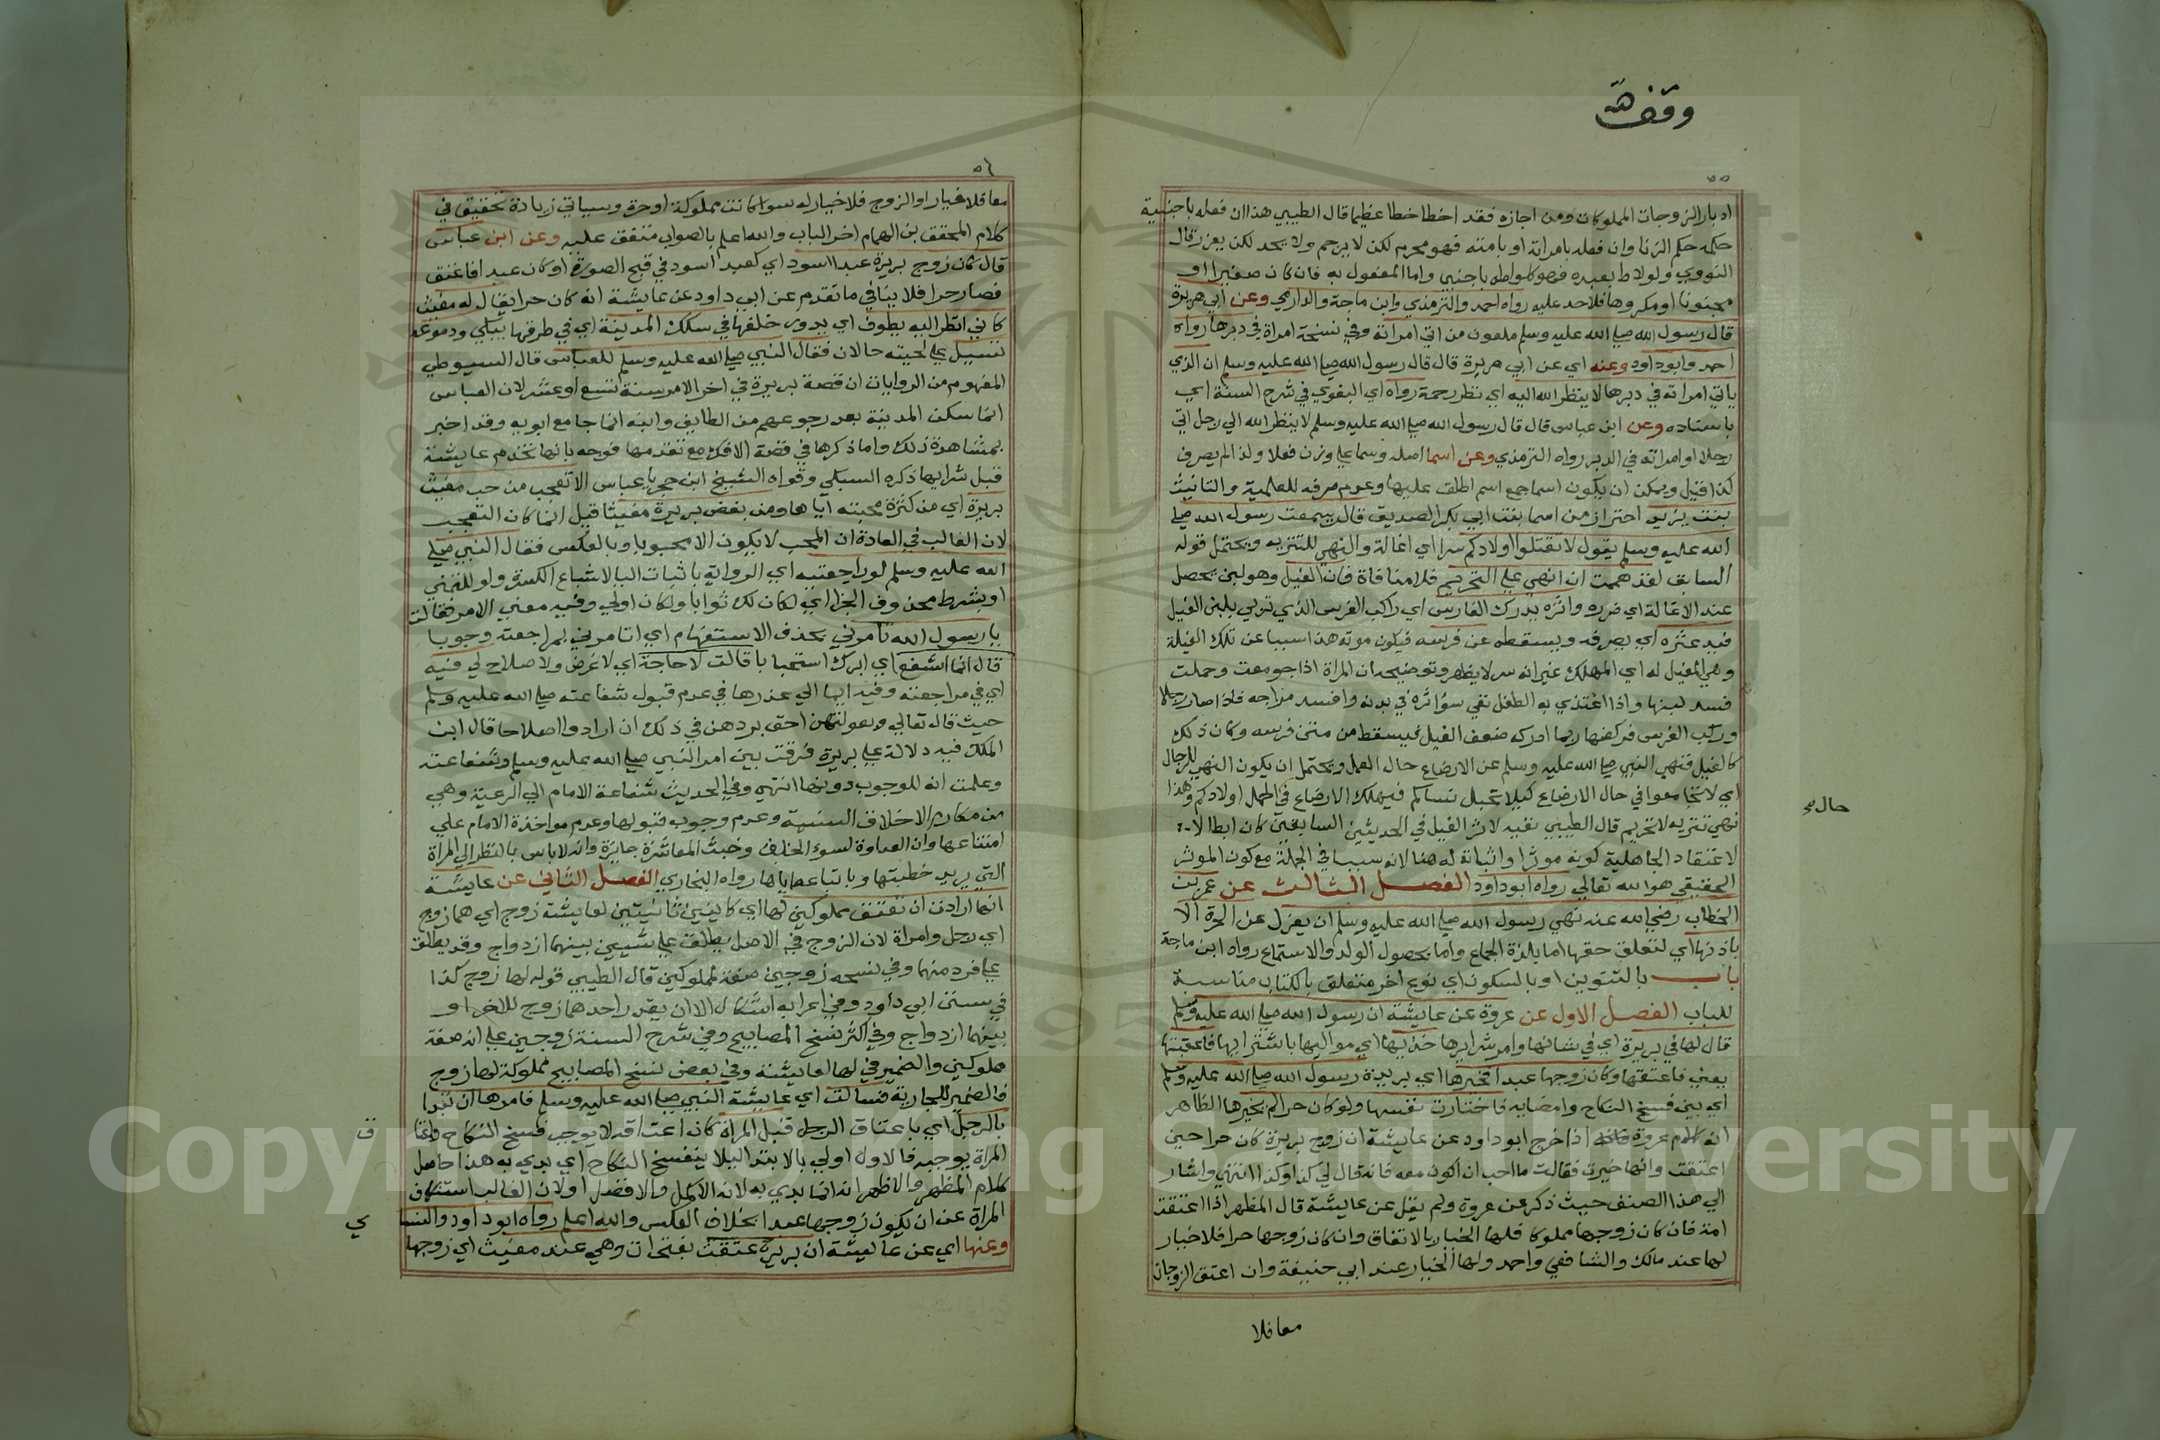 وقف لله
٥٥
ادبار الزوجات المملوكات ومن اجازه فقد اخطا خطا عظيما قال الطيبي هذا ان فعله باجنبية
حكمه حكم الزنا وان فعله بامراته او بامته فهو محرم لكن لا يرجم ولا يحد لكن يعزر قال
النووي ولو لاط بعبده فهو كلواطه باجنبي واما المفعول به فان كان صغيرا او
مجنونا او مكروها فلا حد عليه رواه احمد والترمذي وابن ماجة والدارمي وعن ابي هريرة
قال رسول الله صلي الله عليه وسلم ملعون من اتي امراته وفي نسخة امراة في دبرها رواه
احمد وابو داود وعنه اي عن ابي هريرة قال قال رسول الله صلي الله عليه وسلم ان الذي
ياتي امراته في دبرها لا ينظر الله اليه اي نظر رحمة رواه اي البغوي في شرح السنة اي
باسناده وعن ابن عباس قال قال رسول الله صلي الله عليه وسلم لا ينظر الله الي رجل اتي
رجلا او امراته في الدبر رواه الترمذي وعن اسما اصله وسما علي وزن فعلا ولذا لم يصرف
كذا قيل ويمكن ان يكون اسما جمع اسم اطلق عليها وعدم صرفه للعلمية والتانيث
بنت يزيد احتراز من اسما بنت ابي بكر الصديق قال سمعت رسول الله صلي
الله عليه وسلم يقول لا تقتلوا اولادكم سرا اي اغالة والنهي للتنزيه ويحتمل قوله
السابق لقد هممت ان انهي علي التحريم فلا منافاة فان الغيل وهو لبن يحصل
عند الاغالة اي ضرره واثره يدرك الفارس اي راكب الفرس الذي تربي بلبن الغيل
فيدعثره اي يصرفه ويسقطه عن فرسه فيكون موته هذا سببا عن تلك الغيلة
وهي المغيل له اي المهلك غير انه سر لا يظهر وتوضيحه ان المراة اذا جومعت وحملت
فسد لبنها واذا اغتذي به الطفل تقي سؤ اثره في بدنه وافسد مزاجه فاذا صار رجلا
وركب الفرس فركضها ربما ادركه ضعف الغيل فيسقط من متن فرسه وكان ذلك
كالقتل فنهي النبي صلي الله عليه وسلم عن الارضاع حال الحمل ويحتمل ان يكون النهي للرجال
اي لا تجامعوا في حال الارضاع كيلا تحبل نساكم فيهلك الارضاع في الحمل اولادكم وهذا
نهي تنزيه لا تحريم قال الطيبي نفيه لاثر الغيل في الحديثين السابقين كان ابطالا
لاعتقاد الجاهلية كونه موثرا واثباته له هنا لانه سببا في الجملة مع كون الموثر
الحقيقي هو الله تعالي رواه ابو داود الفصل الثالث عن عمر بن
الخطاب رضي الله عنه نهي رسول الله صلي الله عليه وسلم ان يعزل عن الحرة الا
باذنها اي لتعلق حقها اما بلذة الجماع واما بحصول الولد والاستمتاع رواه ابن ماجة
باب بالتنوين او بالسكون اي نوع اخر متعلق بالكتاب مناسبة
للباب الفصل الاول عن عروة عن عايشة ان رسول الله صلي الله عليه وسلم
قال لها في بريرة اي في شانها وامر شرايها خذيها اي مواليها باشترايها فاعتقيها
يعني فاعتقتها وكان زوجها عبدا فخيرها اي بريرة رسول الله صلي الله عليه وسلم
اي بين فسخ النكاح وامضايه فاختارت نفسها ولو كان حرا لم يخيرها الظاهر
انه كلام عروة اذ اخرج ابو داود عن عايشة ان زوج بريرة كان حرا حين
اعتقت وانها خيرت فقالت ما احب ان اكون معه فانه قال لي كذا وكذا انتهي واشار
الي هذا الصنف حيث ذكر عن عروة ولم يقل عن عايشة قال المظهر اذا اعتقت
امة فان كان زوجها مملوكا فلها الخيار بالاتفاق وان كان زوجها حرا فلا خيار
لها عند مالك والشافعي واحمد ولها الخيار عند ابي حنيفة وان اعتق الزوجان
معا فلا
حال صح
٥٦
معا فلا خيار او الزوج فلا خيار له سوا كانت مملوكة او حرة وسياتي زيادة تحقيق في
كلام المحقق بن الهمام اخر الباب والله اعلم بالصواب متفق عليه وعن ابن عباس
قال كان زوج بريرة عبدا اسود اي كعبد اسود في قبح الصورة او كان عبدا فاعتق
فصار حرا فلا ينافي ما تقدم عن ابي داود عن عايشة انه كان حرا يقال له مغيث
كاني انظر اليه يطوف اي يدور خلفها في سكك المدينة اي في طرقها يبكي ودموعه
تسيل علي لحيته حالان فقال النبي صلي الله عليه وسلم للعباس قال السيوطي
المفهوم من الروايات ان قصة بريرة في اخر الامر سنة تسع او عشر لان العباس
انما سكن المدينة بعد رجوعهم من الطايف وابنه انما جا مع ابويه وقد اخبر
بمشاهدة ذلك واما ذكرها في قصة الافك مع تقدمها فوجه بانها تخدم عايشة
قبل شرايها ذكره السبكي وقواه الشيخ ابن حجر يا عباس الا تعجب من حب مغيث
بريرة اي من كثرة محبته اياها ومن بغض بريرة مغيثا قيل انما كان التعجب
لان الغالب في العادة ان المحب لا يكون الا محبوبا وبالعكس فقال النبي صلي
الله عليه وسلم لو راجعتيه اي الرواية باثبات اليا لاشباع الكسرة ولو للتمني
او بشرط محذوف الجزا اي لكان لك ثوابا ولكان اولي وفيه معني الامر فقالت
يا رسول الله تامرني بحذف الاستفهام اي اتامرني بمراجعته وجوبا
قال انما اشفع اي امرك استحبابا قالت لا حاجة اي لا غرض ولا صلاح لي فيه
اي في مراجعته وفيه ايما الي عذرها في عدم قبول شفاعته صلي الله عليه وسلم
حيث قال تعالي وبعولتهن احق بردهن في ذلك ان ارادوا اصلاحا قال ابن
الملك فيه دلالة علي بريرة فرقت بين امر النبي صلي الله عليه وسلم وشفاعته
وعلمت انه للوجوب دونها انتهي وفي الحديث شفاعة الامام الي الرعية وهي
من مكارم الاخلاق السنية وعدم وجوب قبولها وعدم مواخذة الامام علي
امتناعها وان العداوة لسوء الخلق وخبث المعاشرة جايزة وانه لا باس بالنظر الي المراة
التي يريد خطبتها وباتباعه اياها رواه البخاري الفصل الثاني عن عايشة
انها ارادت ان تعتق مملوكين لها اي كاينين ثابتين لعايشة زوج اي هما زوج
اي رجل وامراة لان الزوج في الاصل يطلق علي شيئين بينهما ازدواج وقد يطلق
علي فرد منهما وفي نسخه زوجين صفة لمملوكين قال الطيبي قوله لها زوج كذا
في سنن ابي داود وفي اعرابه اشكال الا ان يقدر احدهما زوج للاخر او
بينهما ازدواج وفي اكثر نسخ المصابيح وفي شرح السنة زوجين علي انه صفة
مملوكين والضمير في لها لعايشة وفي بعض نسخ المصابيح مملوكة لها زوج
فالضمير للجارية فسالت اي عايشة النبي صلي الله عليه وسلم فامرها ان تبدا
بالرجل اي باعتاق الرجل قبل المراة كانه اعتاقه لا يوجب فسخ النكاح واعتا
ق
المراة يوجبه فالاول اولي بالابتدا ليلا ينفسخ النكاح اي بدي به هذا حاصل
كلام المظهر والاظهر انه انما بدي به لانه الاكمل والافضل او لان الغالب استنكاف
المراة عن ان يكون زوجها عبدا بخلاف العكس والله اعلم رواه ابو داود والنسا
ي
وعنها اي عن عايشة ان بريرة عتقت بفتحات وهي عند مغيث اي زوجها
Copyright © King Saud University